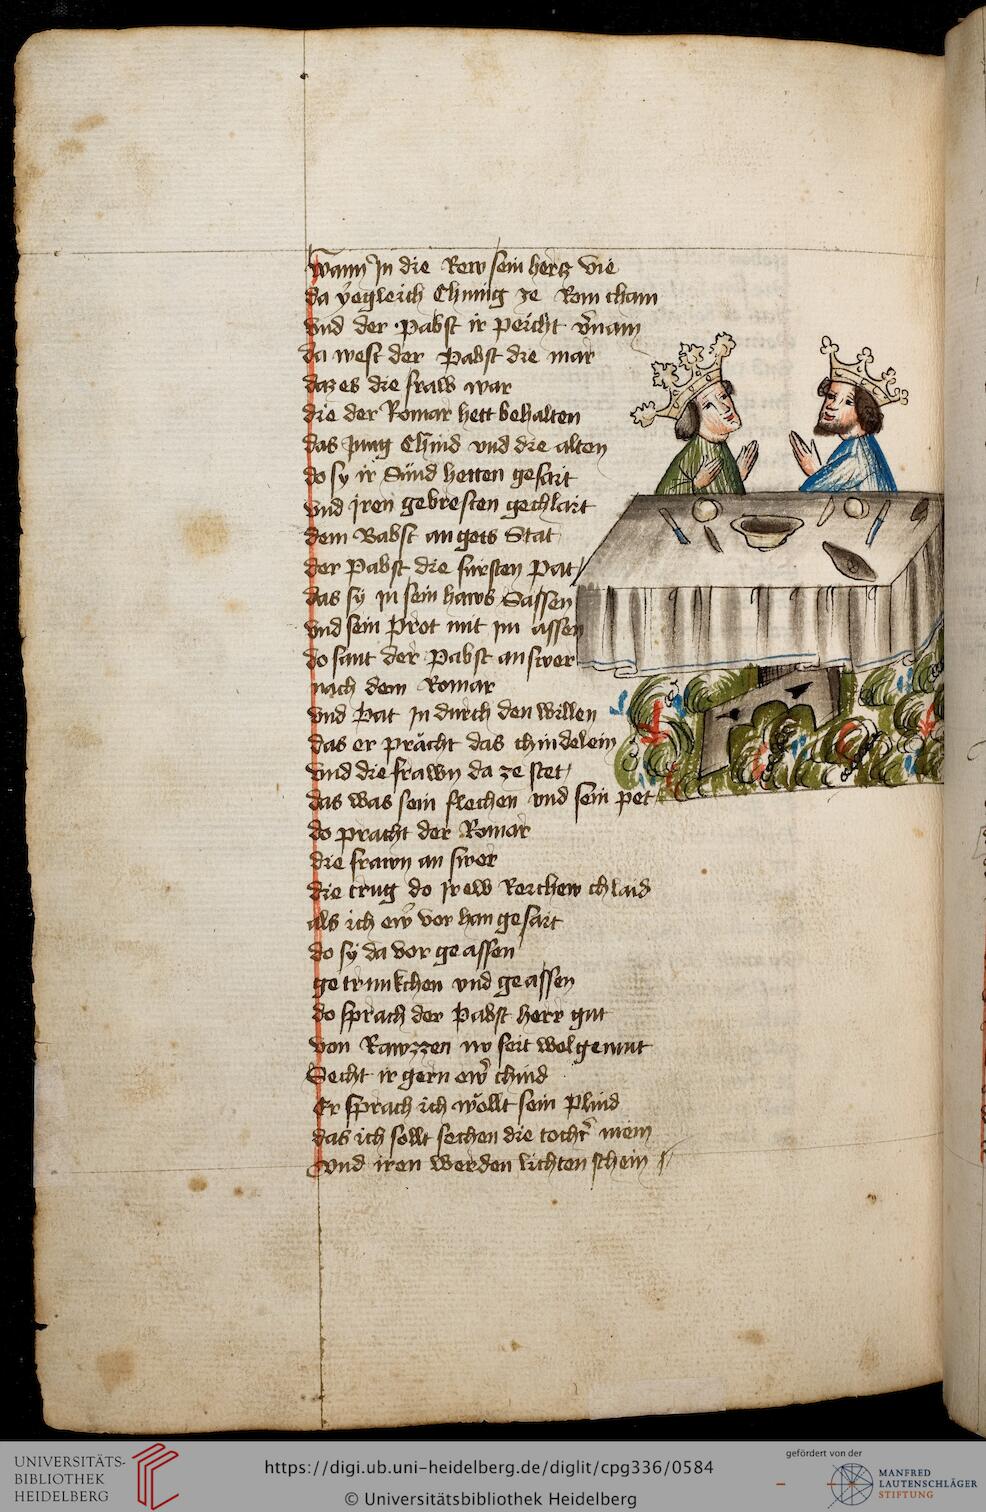 Wann Jn die Rew sein hertz vie
da yegleich Chunig ze Rom cham
vnd der Pabst ir peicht v̄nam
da west der Pabst die mar
daz es die fraw war
die der Romar hett behalten
das Jung Chind vnd die alten
do sy ir Sünd hetten gesait
vnd jren gebresten gechlait
dem Babst an gots Stat
der Pabst die fürsten Pat
das sy in sein haws Sassen
vnd sein Prot mit im assen
do sant der Pabst an swer
nach dem Romar
vnd Pat Jn durch den willen
das er prächt das chindelein
vnd die frawn da ze stet
das was sein flechen vnd sein pet
do pracht der Romar
die frawn an swer
die trug do Jrew Reichew chlaid
als ich ew vor han gesait
do sy da vor geassen
getrunkchen vnd geassen
do sprach der Pabst herr gut
von Rawzzen nv seit wolgemut
Secht ir gern ewr chind
Er sprach ich wöllt sein Plind
das ich sollt sechen die tochtr mein
vnd iren werden lichten schein
UNIVERSITÄTS-
BIBLIOTHEK
HEIDELBERG
https://digi.ub.uni-heidelberg.de/diglit/cpg336/0584
© Universitätsbibliothek Heidelberg
gefördert von der
MANFRED
LAUTENSCHLÄGER
STIFTUNG